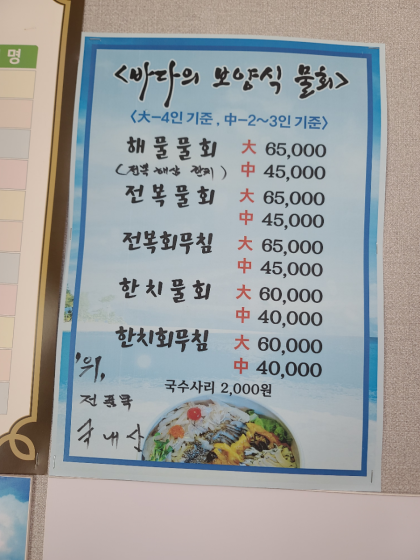 명
<바다의 보양식 물회>
<大-4인 기준, 中-2~3인 기준>
해물물회 大 65,000
(전복 해삼 한치) 中 45,000
전복물회 大 65,000
中 45,000
전복회무침 大 65,000
中 45,000
한치물회 大 60,000
中 40,000
한치회무침 大 60,000
中 40,000
국수사리 2,000원
전복
국내산